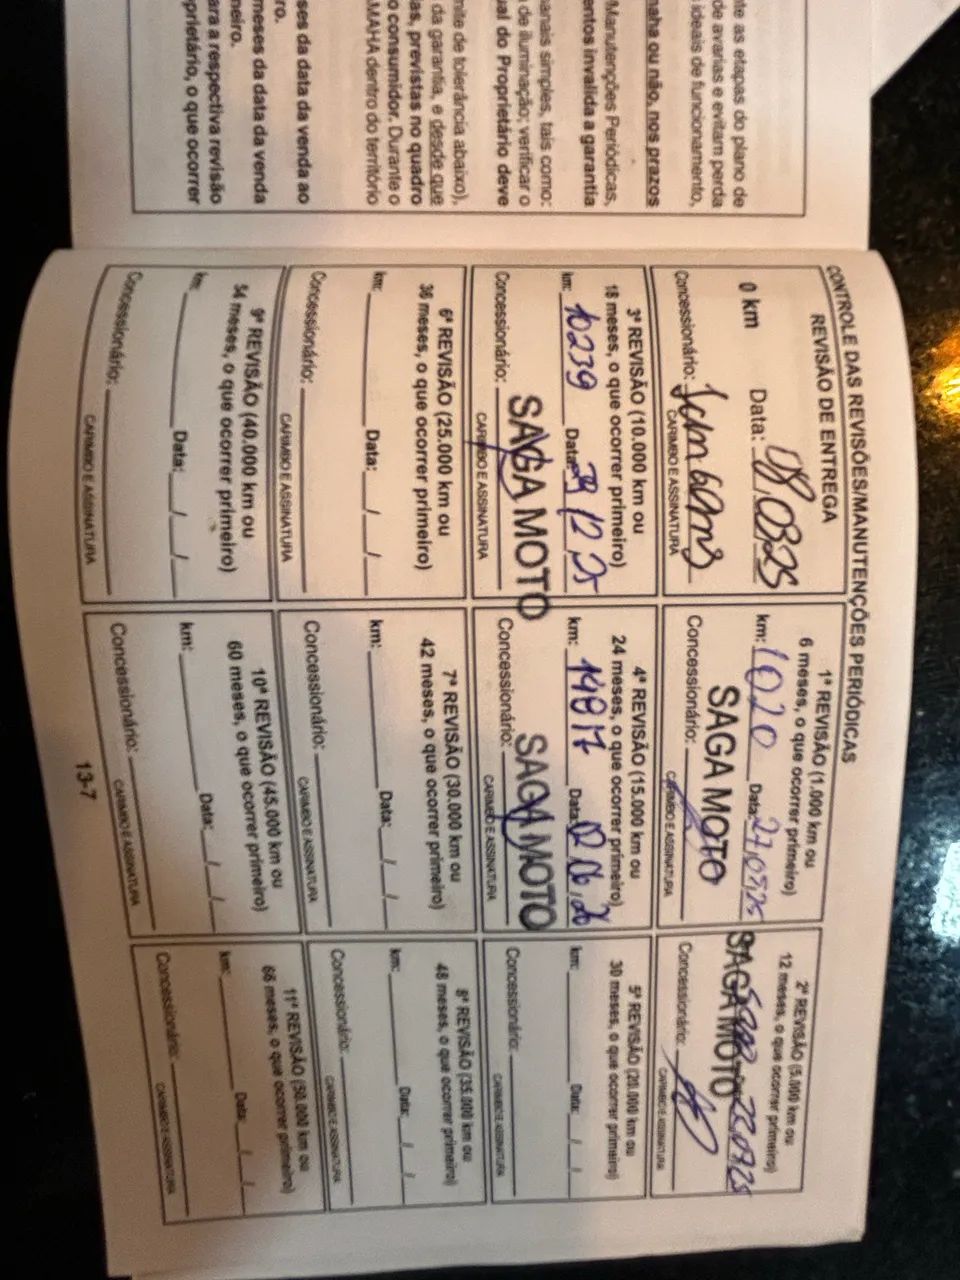 nte as etapas do plano de
de avarias e evitam perda
ideais de funcionamento,
maha ou não, nos prazos
Manutenções Periódicas,
entos invalida a garantia
anais simples, tais como:
de iluminação; verificar o
ual do Proprietário deve
nite de tolerância abaixo),
da garantia, e desde que
las, previstas no quadro
o consumidor. Durante o
MAHA dentro do território
ses da data da venda ao
ro.
meses da data da venda
neiro.
ara a respectiva revisão
prietário, o que ocorrer
CONTROLE DAS REVISÕES/MANUTENÇÕES PERIÓDICAS
REVISÃO DE ENTREGA
0 km Data: 08 03 25
Concessionário:
CARIMBO E ASSINATURA
1ª REVISÃO (1.000 km ou
6 meses, o que ocorrer primeiro)
km: 1020 Data: 27 03 25
SAGA MOTO
Concessionário:
CARIMBO E ASSINATURA
2ª REVISÃO (5.000 km ou
12 meses, o que ocorrer primeiro)
22 07 25
SAGA MOTO
Concessionário:
CARIMBO E ASSINATURA
3ª REVISÃO (10.000 km ou
18 meses, o que ocorrer primeiro)
km: 10239 Data: 12 25
SAGA MOTO
Concessionário:
CARIMBO E ASSINATURA
4ª REVISÃO (15.000 km ou
24 meses, o que ocorrer primeiro)
km: 14817 Data: 02 06 26
SAGA MOTO
Concessionário:
CARIMBO E ASSINATURA
5ª REVISÃO (20.000 km ou
30 meses, o que ocorrer primeiro)
km: Data: / /
Concessionário:
CARIMBO E ASSINATURA
6ª REVISÃO (25.000 km ou
36 meses, o que ocorrer primeiro)
km: Data: / /
Concessionário:
CARIMBO E ASSINATURA
7ª REVISÃO (30.000 km ou
42 meses, o que ocorrer primeiro)
km: Data: / /
Concessionário:
CARIMBO E ASSINATURA
8ª REVISÃO (35.000 km ou
48 meses, o que ocorrer primeiro)
km: Data: / /
Concessionário:
CARIMBO E ASSINATURA
9ª REVISÃO (40.000 km ou
54 meses, o que ocorrer primeiro)
km: Data: / /
Concessionário:
CARIMBO E ASSINATURA
10ª REVISÃO (45.000 km ou
60 meses, o que ocorrer primeiro)
km: Data: / /
Concessionário:
CARIMBO E ASSINATURA
11ª REVISÃO (50.000 km ou
66 meses, o que ocorrer primeiro)
km: Data: / /
Concessionário:
CARIMBO E ASSINATURA
13-7